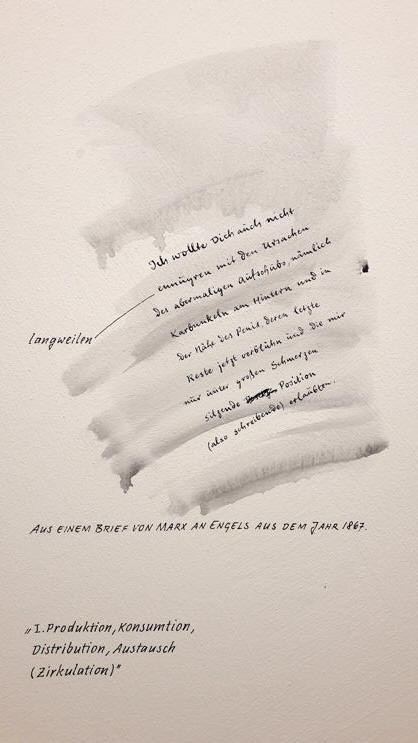 Ich wollte Dich auch nicht
ennüyren mit den Ursachen
des abermaligen Aufschubs, nämlich
Karbunkeln am Hintern und in
der Nähe des Penis, deren letzte
Reste jetzt verblühn und die mir
nur unter großen Schmerzen
sitzende Position
(also schreibende) erlaubten.
langweilen
AUS EINEM BRIEF VON MARX AN ENGELS AUS DEM JAHR 1867.
„I. Produktion, Konsumtion,
Distribution, Austausch
(Zirkulation)"